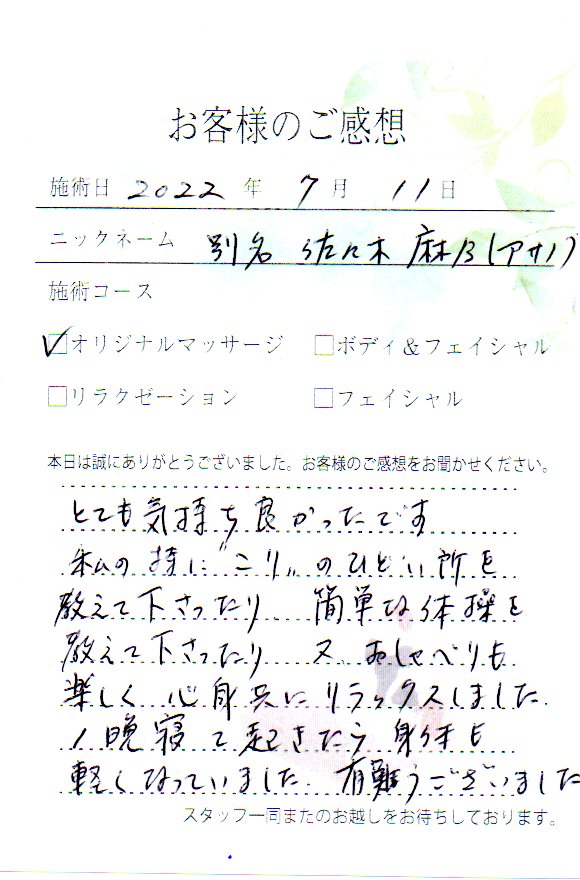 お客様のご感想
施術日 2022 年 7 月 11 日
ニックネーム 別名 佐々木 麻乃(アサノ)
施術コース
☑オリジナルマッサージ □ボディ&フェイシャル
□リラクゼーション □フェイシャル
本日は誠にありがとうございました。お客様のご感想をお聞かせください。
とても気持ち良かったです
私の特に"こり"のひどい所を
教えて下さったり 簡単な体操を
教えて下さったり 又 おしゃべりも
楽しく 心身共にリラックスしました
1晩寝て起きたら身体も
軽くなっていました 有難うございました
スタッフ一同またのお越しをお待ちしております。